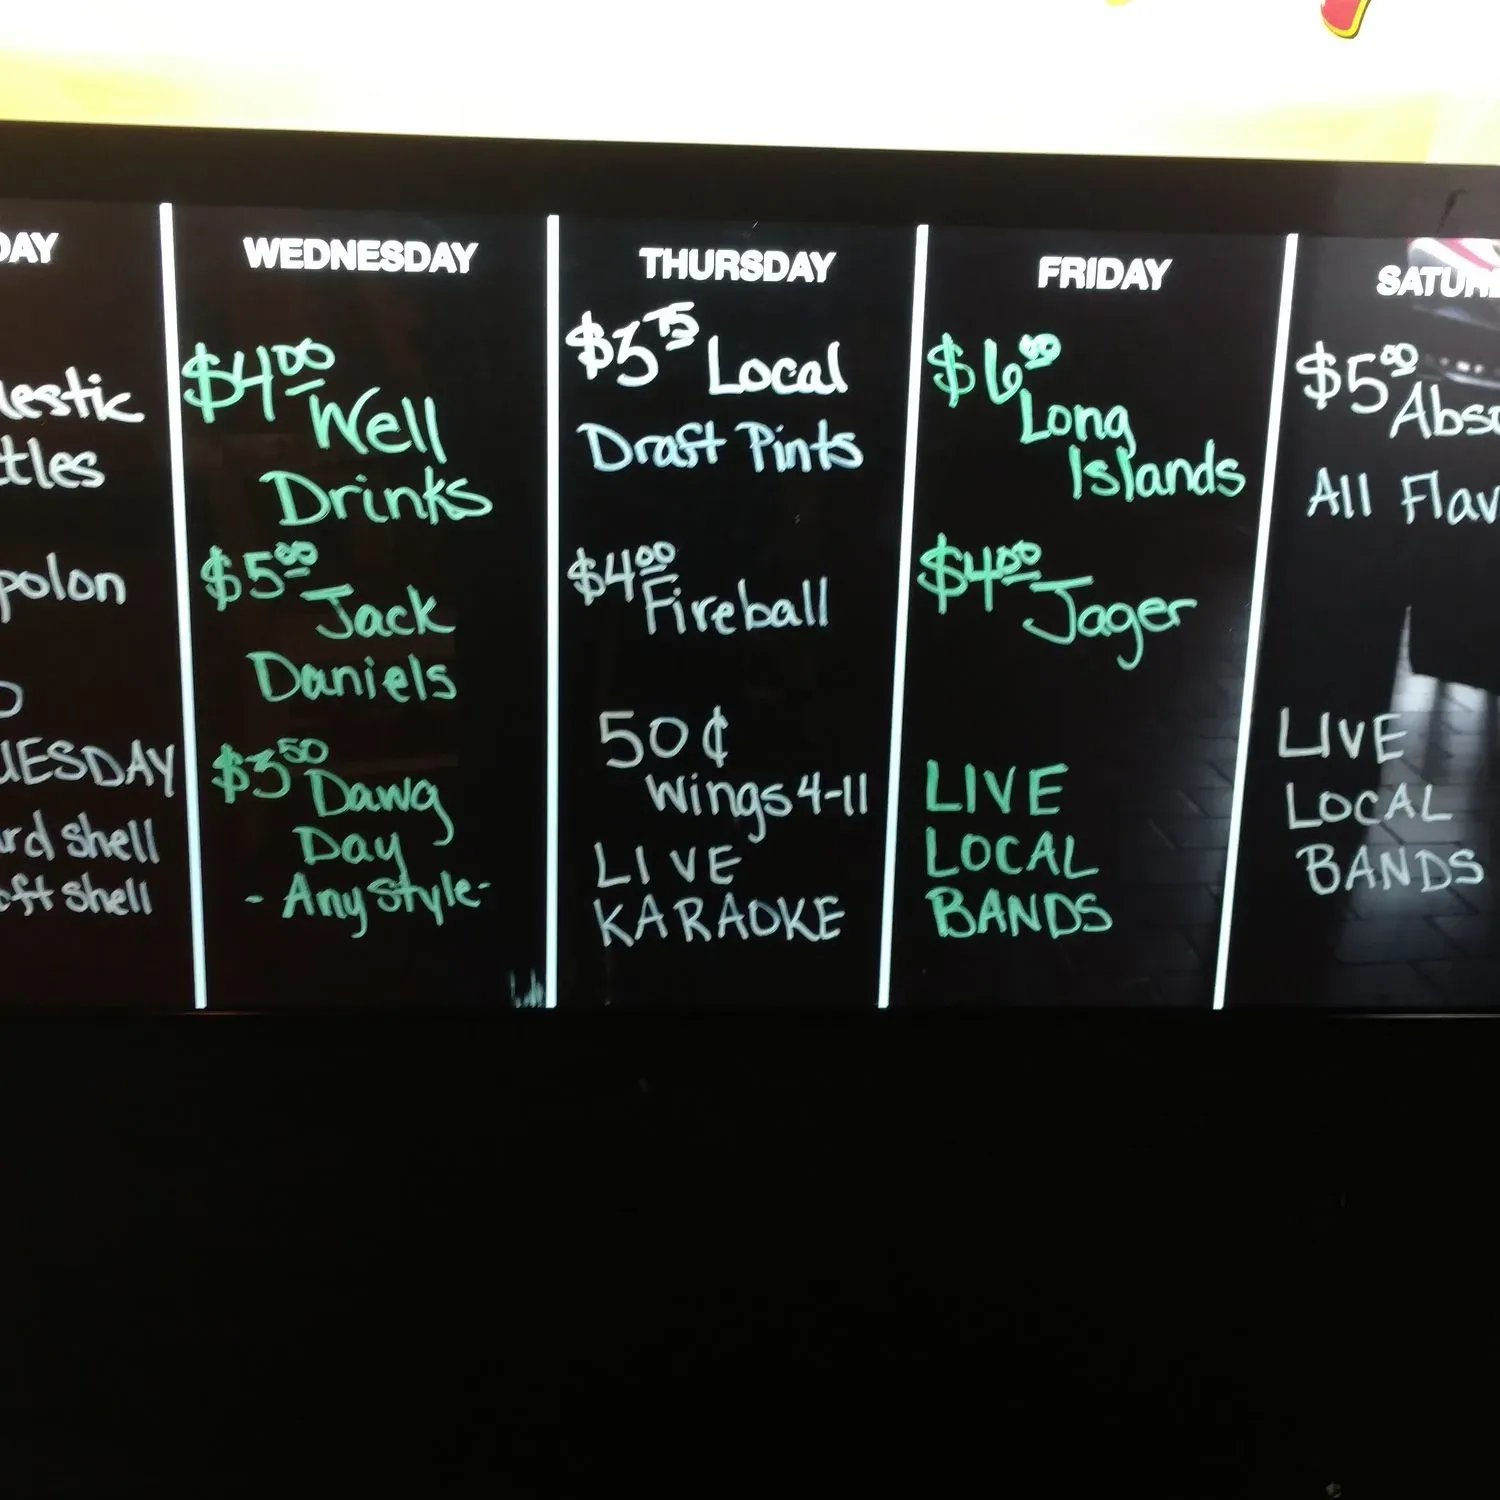 DAY
lestic
ttles
polon
UESDAY
ard shell
oft shell
WEDNESDAY
$4.00 Well
Drinks
$5.00 Jack
Daniels
$3.50 Dawg
Day
- Any style -
THURSDAY
$3.75 Local
Draft Pints
$4.00 Fireball
50¢
Wings 4-11
LIVE
KARAOKE
FRIDAY
$6.00 Long
Islands
$4.00 Jager
LIVE
LOCAL
BANDS
SATUR
$5.00 Abso
All Flav
LIVE
LOCAL
BANDS